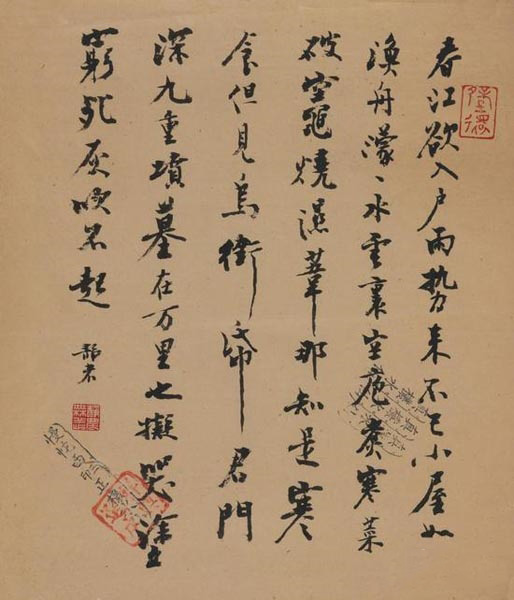 春江欲入户雨勢来不已小屋如
漁舟濛〻水雲裏空庖煮寒菜
破竈燒濕葦那知是寒
食但見烏銜帋君門
深九重墳墓在万里也擬哭塗
窮死灰吹不起